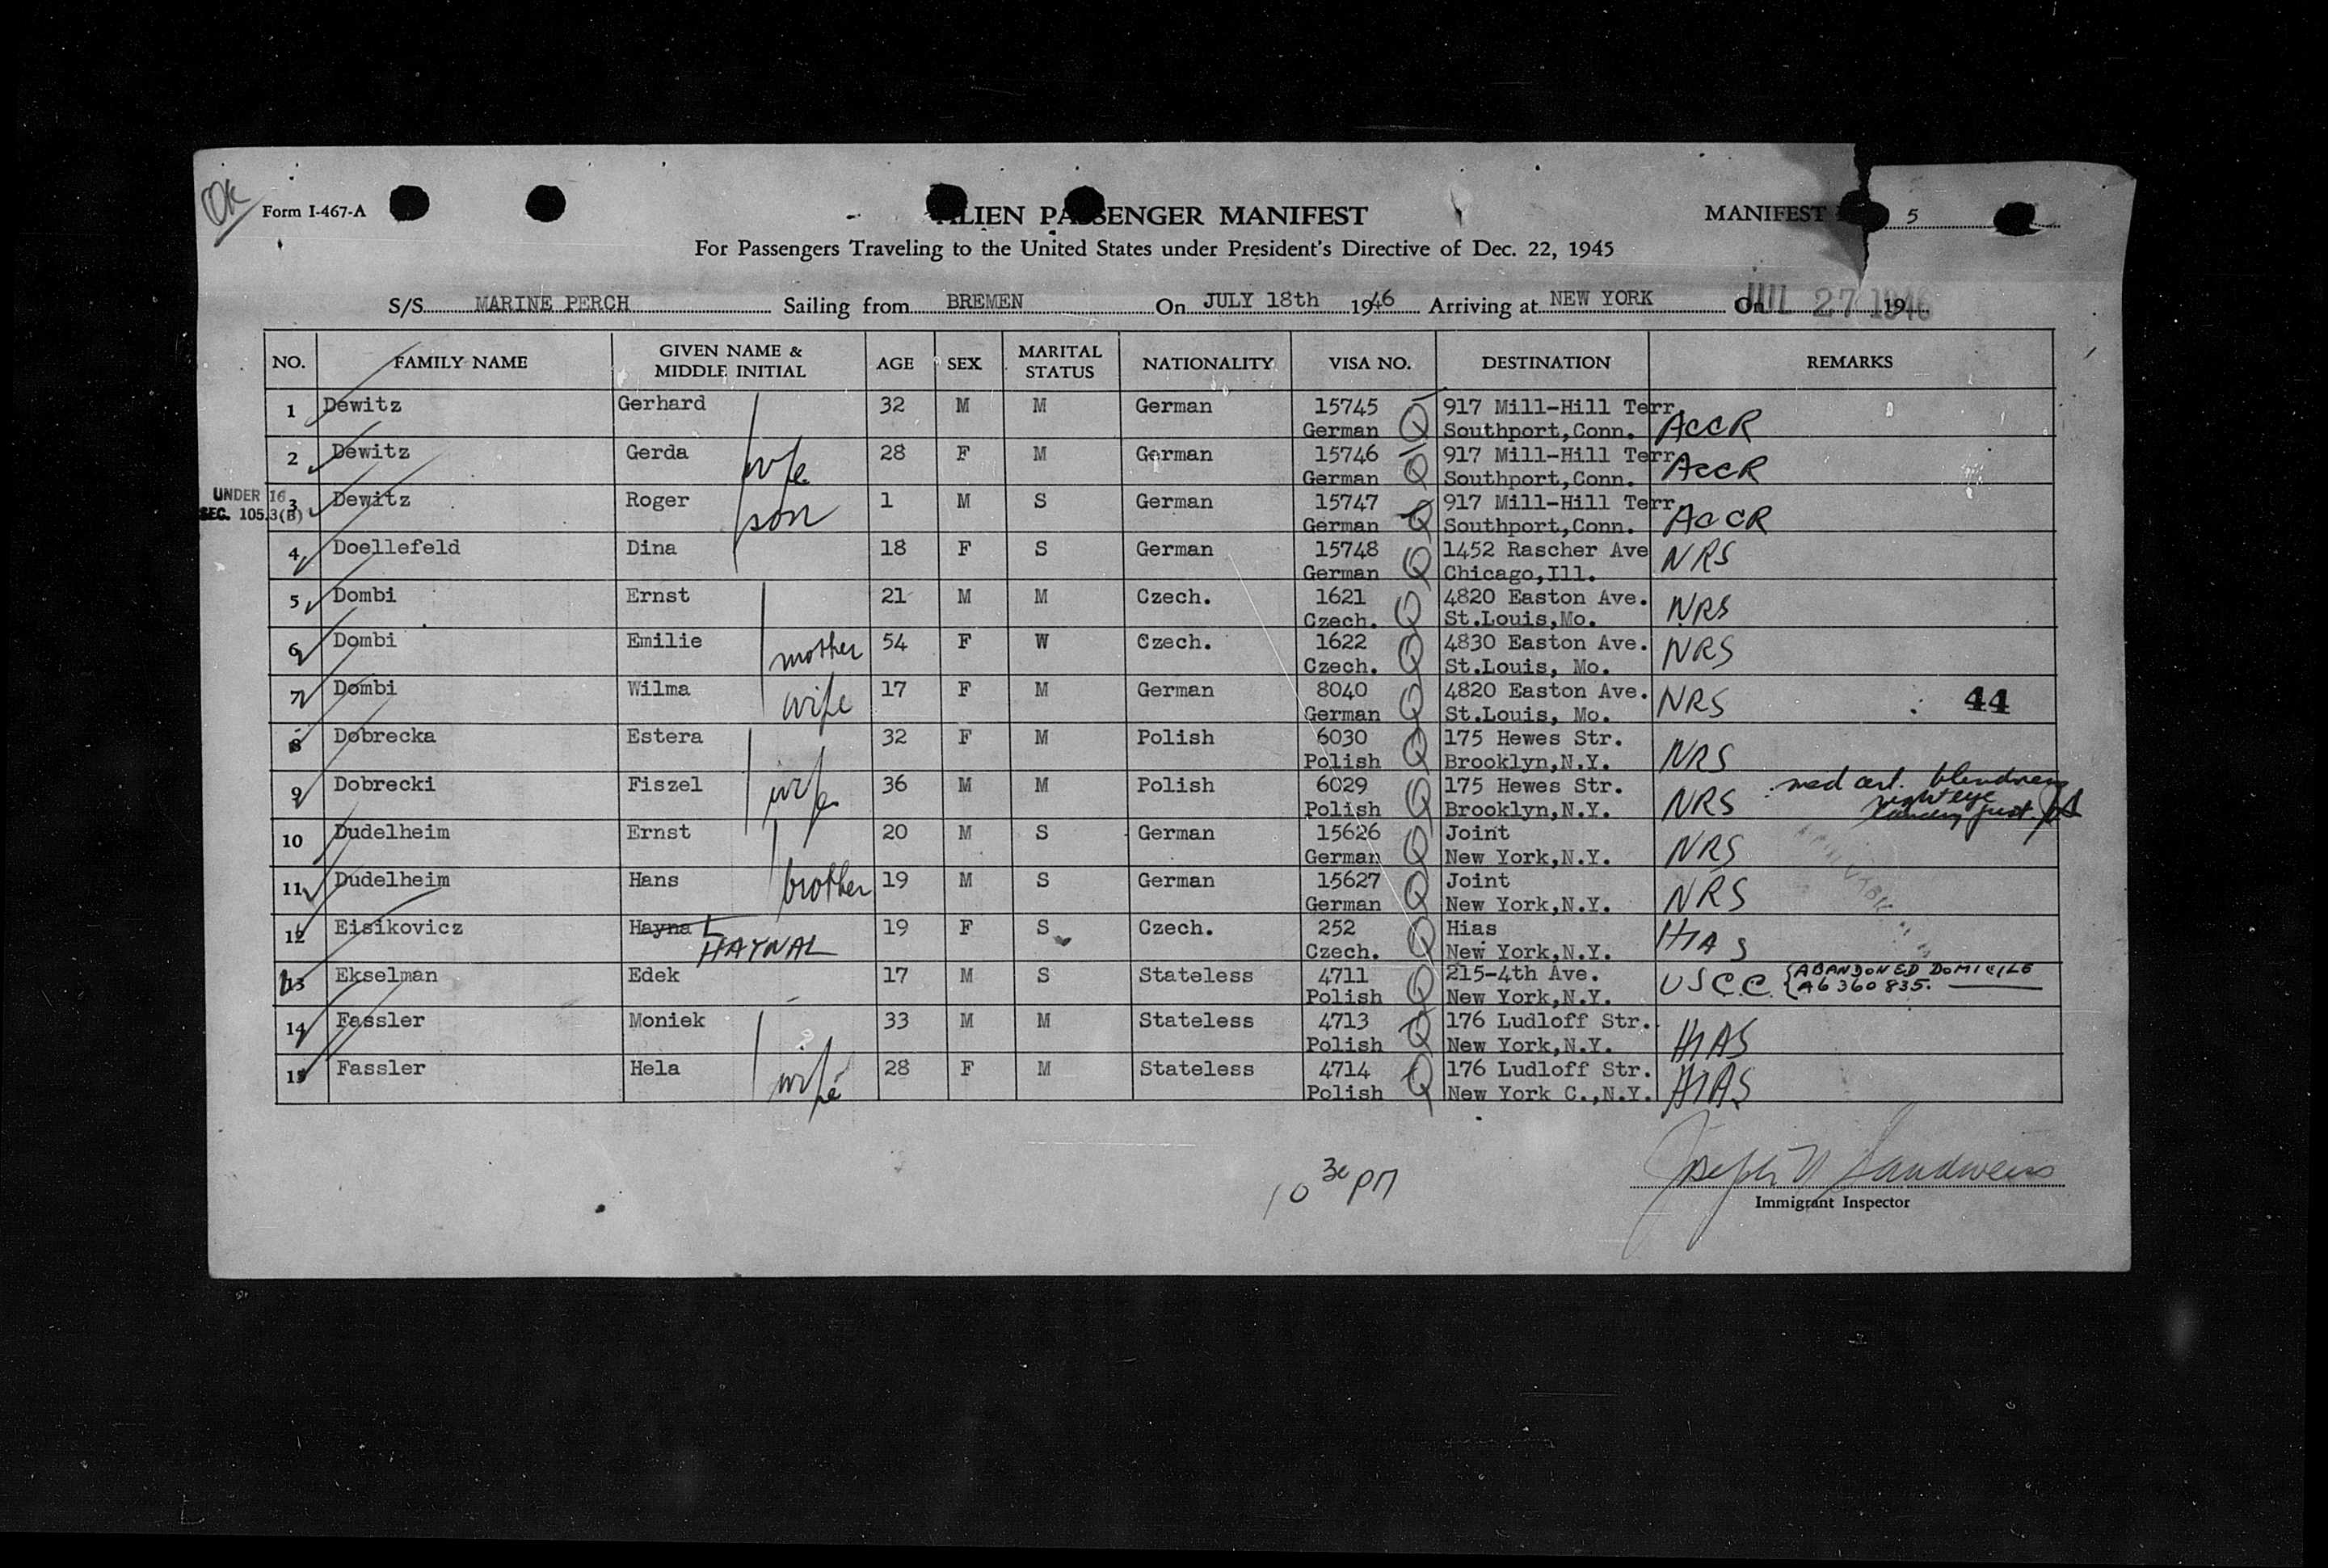 OK
Form I-467-A
ALIEN PASSENGER MANIFEST
MANIFEST 5
For Passengers Traveling to the United States under President's Directive of Dec. 22, 1945
S/S MARINE PERCH Sailing from BREMEN On JULY 18th 1946 Arriving at NEW YORK On JUL 27 1946 19
NO. FAMILY NAME GIVEN NAME & MIDDLE INITIAL AGE SEX MARITAL STATUS NATIONALITY VISA NO. DESTINATION REMARKS
1 Dewitz Gerhard 32 M M German 15745 917 Mill-Hill Terr
German Q Southport,Conn. ACCR
2 Dewitz Gerda wife 28 F M German 15746 917 Mill-Hill Terr
German Q Southport,Conn. ACCR
UNDER 16
SEC. 105.3(B)
3 Dewitz Roger son 1 M S German 15747 917 Mill-Hill Terr
German Q Southport,Conn. ACCR
4 Doellefeld Dina 18 F S German 15748 1452 Rascher Ave NRS
German Q Chicago,Ill.
5 Dombi Ernst 21 M M Czech. 1621 4820 Easton Ave. NRS
Czech. Q St.Louis,Mo.
6 Dombi Emilie mother 54 F W Czech. 1622 4830 Easton Ave. NRS
Czech. Q St.Louis, Mo.
7 Dombi Wilma wife 17 F M German 8040 4820 Easton Ave. NRS 44
German Q St.Louis, Mo.
8 Dobrecka Estera 32 F M Polish 6030 175 Hewes Str.
Polish Q Brooklyn,N.Y. NRS
9 Dobrecki Fiszel wife 36 M M Polish 6029 175 Hewes Str. med cert. blindness
Polish Q Brooklyn,N.Y. NRS right eye
10 Dudelheim Ernst 20 M S German 15626 Joint
German Q New York,N.Y. NRS
11 Dudelheim Hans brother 19 M S German 15627 Joint
German Q New York,N.Y. NRS
12 Eisikovicz Hayna L 19 F S Czech. 252 Hias
HAYNAL Czech. Q New York,N.Y. HIAS
13 Ekselman Edek 17 M S Stateless 4711 215-4th Ave. USCC. {ABANDONED DOMICILE
Polish Q New York,N.Y. A6360835.
14 Fassler Moniek 33 M M Stateless 4713 176 Ludloff Str.
Polish Q New York,N.Y. HIAS
15 Fassler Hela wife 28 F M Stateless 4714 176 Ludloff Str.
Polish Q New York C.,N.Y. HIAS
10 30 PM
Joseph Sandweiss
Immigrant Inspector